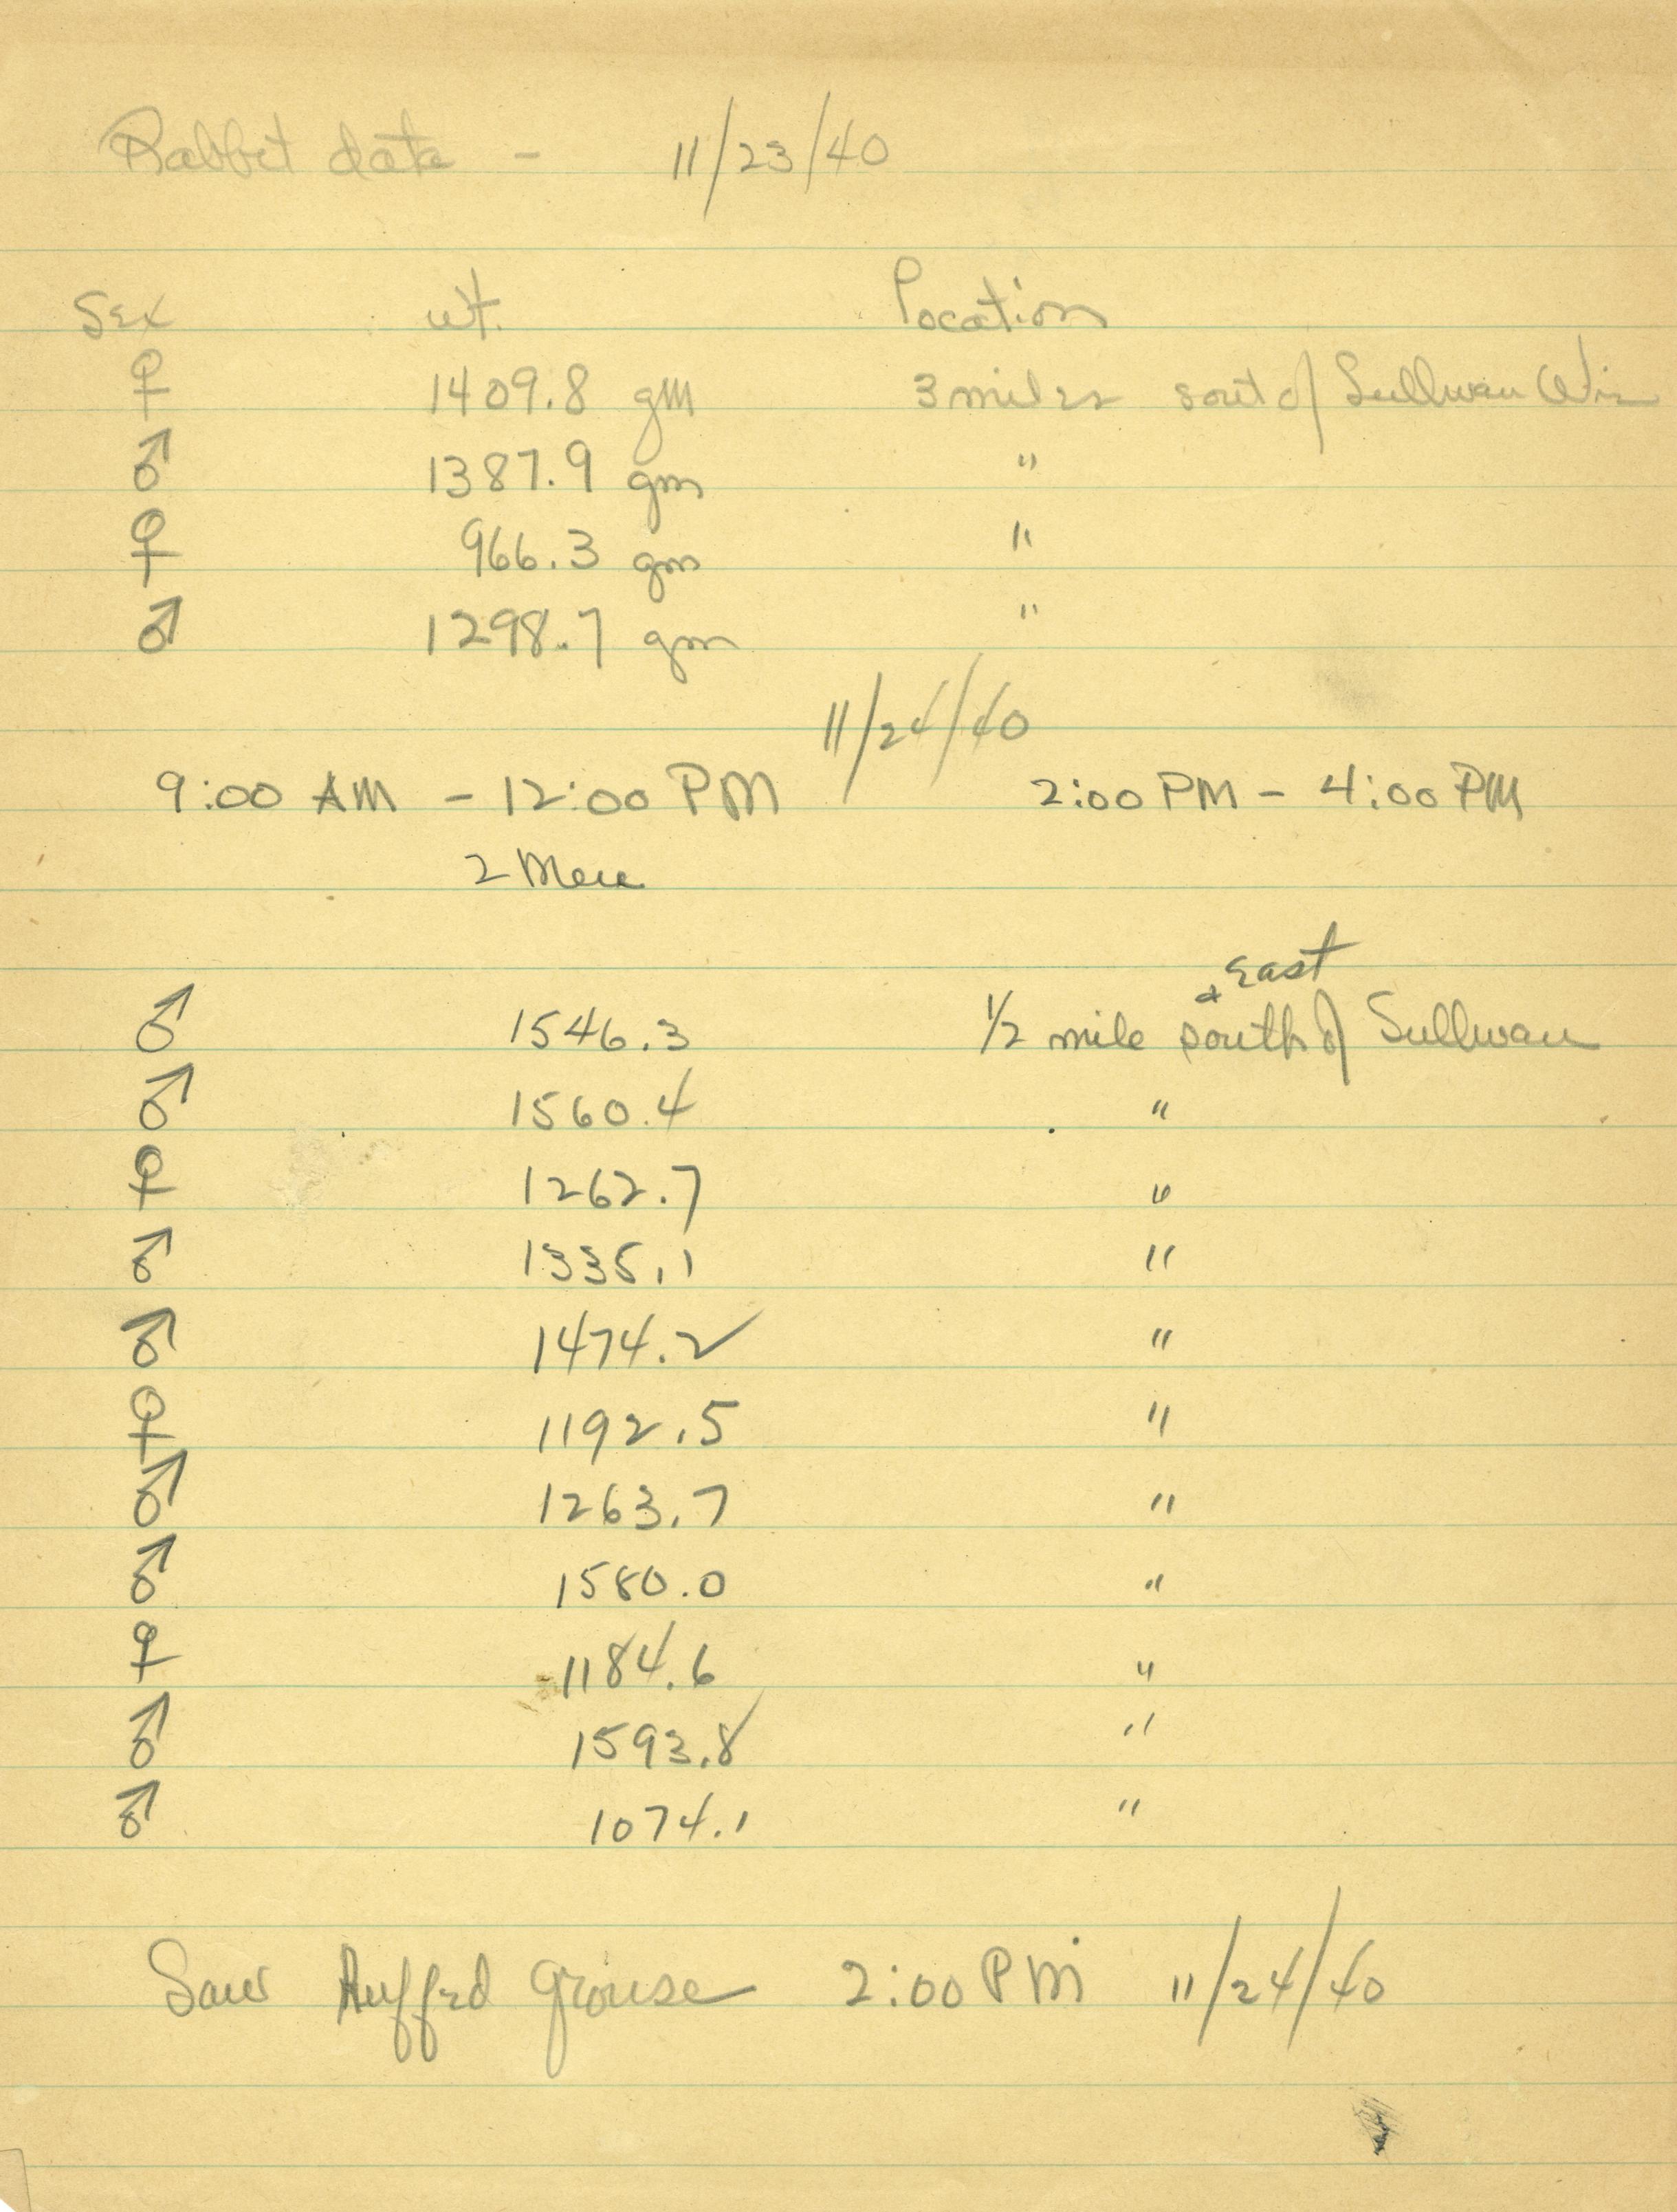 Rabbit data - 11/23/40
Sex wt. Location
♀ 1409.8 gm 3 miles sout of Sullivan Wis
♂ 1387.9 gm "
♀ 966.3 gm "
♂ 1298.7 gm "
11/24/40
9:00 AM - 12:00 PM 2:00 PM - 4:00 PM
2 Men
& East
♂ 1546.3 1/2 mile south of Sullivan
♂ 1560.4 "
♀ 1262.7 "
♂ 1335.1 "
♂ 1474.2 "
♀ 1192.5 "
♂ 1263.7 "
♂ 1580.0 "
♀ 1184.6 "
♂ 1593.8 "
♂ 1074.1 "
Saw Ruffed grouse 2:00 PM 11/24/40